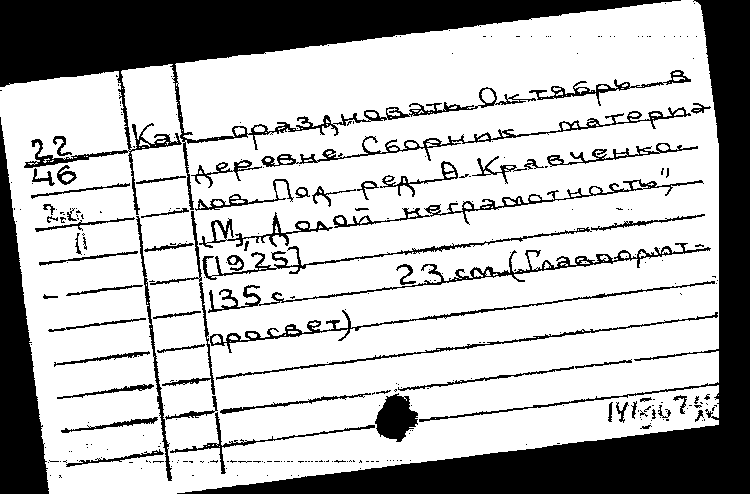 22
46
2 экз
Как праздновать Октябрь в
деревне. Сборник материа
лов. Под ред. А. Кравченко.
М., „Долой неграмотность",
[1925].
135 с. 23 см (Главполит-
просвет).